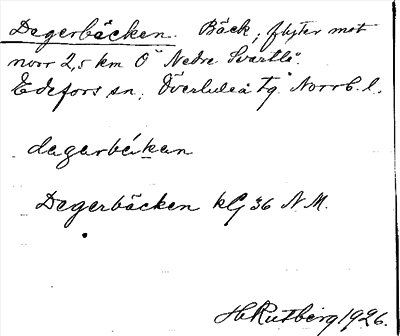 Degerbäcken. Bäck; flyter mot
norr 2,5 km Ö Nedre Svartlå.
Edefors sn, Överluleå tg Norrb. l.
degerbékan
Degerbäcken kG 36 N. M.
H. Rutberg 1926.